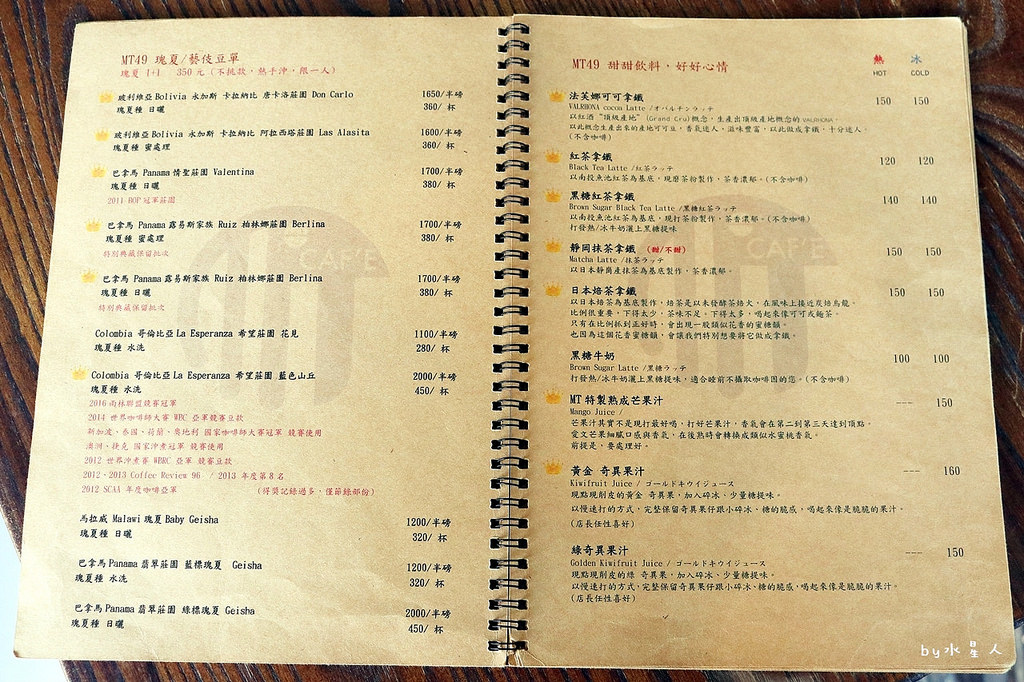 MT49 瑰夏/藝伎豆單
瑰夏 1+1 350元 (不挑款,熱手沖,限一人)
玻利維亞Bolivia 永加斯 卡拉納比 唐卡洛莊園 Don Carlo 1650/半磅
瑰夏種 日曬 360/ 杯
玻利維亞Bolivia 永加斯 卡拉納比 阿拉西塔莊園 Las Alasita 1600/半磅
瑰夏種 蜜處理 360/ 杯
巴拿馬 Panama 情聖莊園 Valentina 1700/半磅
瑰夏種 日曬 380/ 杯
2011 BOP 冠軍莊園
巴拿馬 Panama 露易斯家族 Ruiz 柏林娜莊園 Berlina 1700/半磅
瑰夏種 蜜處理 380/ 杯
特別典藏保留批次
巴拿馬 Panama 露易斯家族 Ruiz 柏林娜莊園 Berlina 1700/半磅
瑰夏種 日曬 380/ 杯
特別典藏保留批次
Colombia 哥倫比亞 La Esperanza 希望莊園 花見 1100/半磅
瑰夏種 水洗 280/ 杯
Colombia 哥倫比亞 La Esperanza 希望莊園 藍色山丘 2000/半磅
瑰夏種 水洗 450/ 杯
2016 雨林聯盟競賽冠軍
2014 世界咖啡師大賽 WBC 亞軍競賽豆款
新加波、泰國、荷蘭、奧地利 國家咖啡師大賽冠軍 競賽使用
澳洲、捷克 國家沖煮冠軍 競賽使用
2012 世界沖煮賽 WBRC 亞軍 競賽豆款
2012、2013 Coffee Review 96 / 2013 年度第8名
2012 SCAA 年度咖啡亞軍 (得獎記錄過多,僅節錄部份)
馬拉威 Malawi 瑰夏 Baby Geisha 1200/半磅
瑰夏種 日曬 320/ 杯
巴拿馬 Panama 翡翠莊園 藍標瑰夏 Geisha 1200/半磅
瑰夏種 水洗 320/ 杯
巴拿馬 Panama 翡翠莊園 綠標瑰夏 Geisha 2000/半磅
瑰夏種 日曬 450/ 杯
MT49 甜甜飲料,好好心情 熱 冰
HOT COLD
法芙娜可可拿鐵 150 150
VALRHONA cocoa Latte /オバルチンラッテ
以紅酒“頂級產地”(Grand Cru)概念,生產出頂級產地概念的 VALRHONA。
以此概念生產出來的產地可可豆,香氣迷人,滋味豐富,以此做成拿鐵,十分迷人。
(不含咖啡)
紅茶拿鐵 120 120
Black Tea Latte /紅茶ラッテ
以南投魚池紅茶為基底,現磨茶粉製作,茶香濃郁。(不含咖啡)
黑糖紅茶拿鐵 140 140
Brown Sugar Black Tea Latte /黑糖紅茶ラッテ
以南投魚池紅茶為基底,現打茶粉製作,茶香濃郁。(不含咖啡)
打發熱/冰牛奶灑上黑糖提味
靜岡抹茶拿鐵 (甜/不甜) 150 150
Matcha Latte /抹茶ラッテ
以日本靜崗產抹茶為基底製作,茶香濃郁。
日本焙茶拿鐵 150 150
以日本焙茶為基底製作,焙茶是以未發酵茶焙火,在風味上接近炭焙烏龍。
比例很重要,下得太少,茶味不足,下得太多,喝起來像可可或麵茶。
只有在比例抓到正好時,會出現一股類似花香的蜜糖韻。
也因為這個花香蜜糖韻,會讓我們特別想要將它做成拿鐵。
黑糖牛奶 100 100
Brown Sugar Latte /黑糖ラッテ
打發熱/冰牛奶灑上黑糖提味,適合睡前不攝取咖啡因的您。(不含咖啡)
MT 特製熟成芒果汁 --- 150
Mango Juice /
芒果汁其實不是現打最好喝,打好芒果汁,香氣會在第二到第三天達到頂點。
愛文芒果細膩口感與香氣,在後熟時會轉換成類似水蜜桃香氣。
前提是,要處理好。
黃金 奇異果汁 --- 160
Kiwifruit Juice / ゴールドキウイジュース
現點現削皮的黃金 奇異果,加入碎冰、少量糖提味。
以慢速打的方式,完整保留奇異果仔跟小碎冰、糖的脆感,喝起來像是脆脆的果汁。
(店長任性喜好)
綠奇異果汁 --- 150
Golden Kiwifruit Juice / ゴールドキウイジュース
現點現削皮的綠 奇異果,加入碎冰、少量糖提味。
以慢速打的方式,完整保留奇異果仔跟小碎冰、糖的脆感,喝起來像是脆脆的果汁。
(店長任性喜好)
CAFE
by水星人